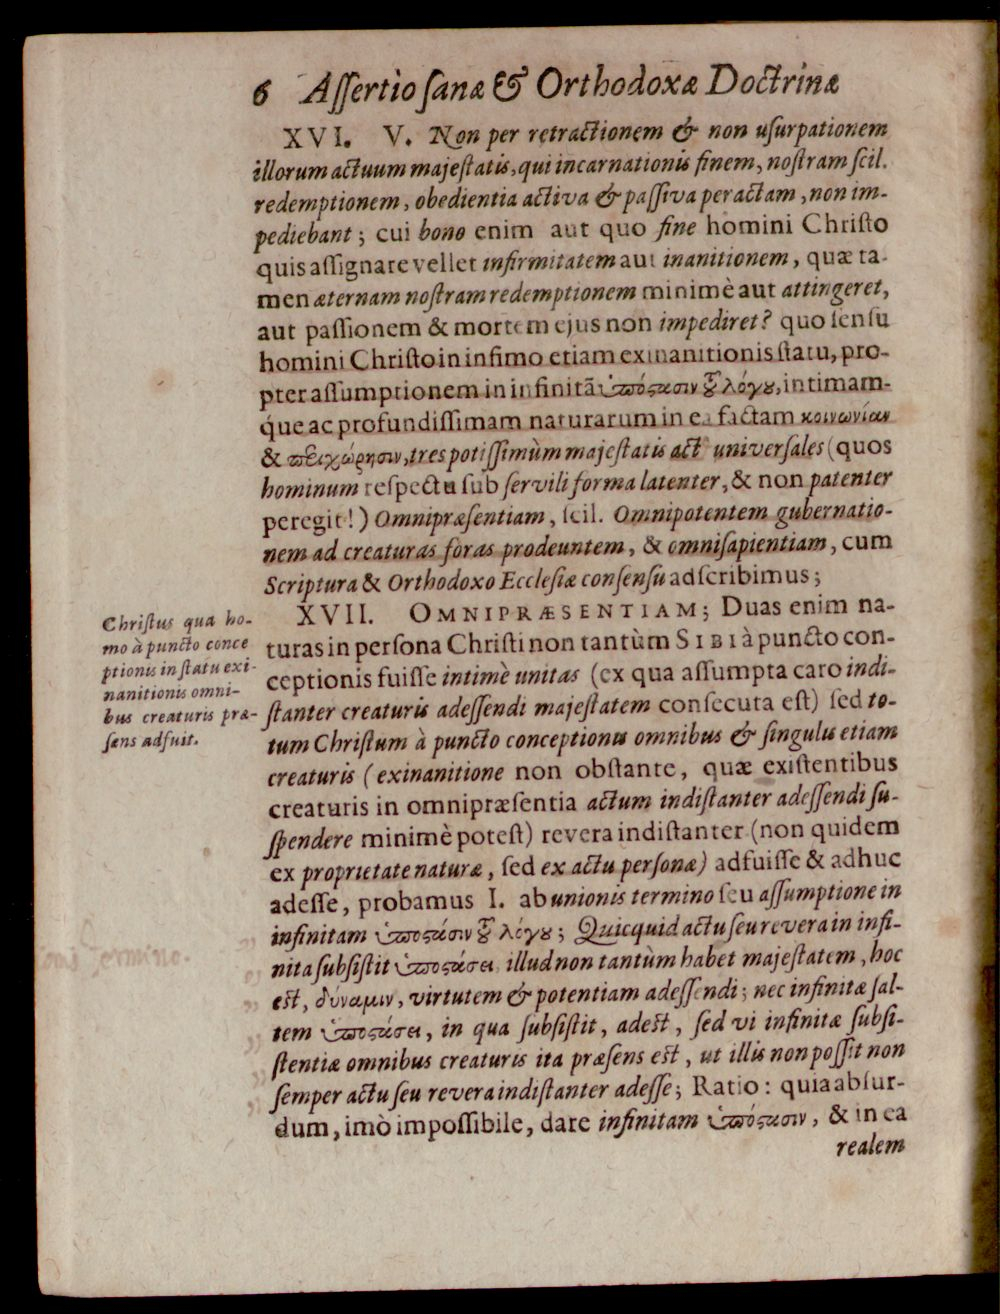 6 Aſſertio ſanæ & Orthodoxæ Doctrinæ
XVI. V. Non per retractionem & non uſurpationem
illorum actuum majeſtatis, qui incarnationis finem, noſtram ſcil.
redemptionem, obedientia activa & paſſiva peractam, non im-
pediebant; cui bono enim aut quo fine homini Chriſto
quis aſſignare vellet infirmitatem aut inanitionem, quæ ta-
men æternam noſtram redemptionem minimè aut attingeret,
aut paſſionem & mortem ejus non impediret? quo ſenſu
homini Chriſto in infimo etiam exinanitionis ſtatu, pro-
pter aſſumptionem in infinitã ὑπόςασιν τȣ͂ λόγȣ, intimam-
q́ue ac profundiſſimam naturarum in ea factam κοινωνίαν
& περιχώρησιν, tres potiſſimùm majeſtatis act univerſales (quos
hominum reſpectu ſub ſervili forma latenter, & non patenter
peregit!) Omnipræſentiam, ſcil. Omnipotentem gubernatio-
nem ad creaturas foras prodeuntem, & omniſapientiam, cum
Scriptura & Orthodoxo Eccleſiæ conſenſu adſcribimus;
XVII. OMNIPRÆSENTIAM; Duas enim na-
turas in perſona Chriſti non tantùm SIBI à puncto con-
ceptionis fuiſſe intimè unitas (ex qua aſſumpta caro indi-
ſtanter creaturis adeſſendi majeſtatem conſecuta eſt) ſed to-
tum Chriſtum à puncto conceptionis omnibus & ſingulis etiam
creaturis (exinanitione non obſtante, quæ exiſtentibus
creaturis in omnipræſentia actum indiſtanter adeſſendi ſu-
ſpendere minimè poteſt) revera indiſtanter (non quidem
ex proprietate naturæ, ſed ex actu perſonæ) adfuiſſe & adhuc
adeſſe, probamus I. ab unionis termino ſeu aſſumptione in
infinitam ὑπoςάσιν τȣ͂ λόγȣ; Quicquid actu ſeu revera in infi-
nita ſubſiſtit ὑπoςάσει, illud non tantùm habet majeſtatem, hoc
eſt, δυναμιν, virtutem & potentiam adeſſendi; nec infinitæ ſal-
tem ὑπoςάσει, in qua ſubſiſtit, adeſt, ſed vi infinitæ ſubſi-
ſtentiæ omnibus creaturis ita præſens eſt, ut illis non poſſit non
ſemper actu ſeu revera indiſtanter adeſſe; Ratio: quia abſur-
dum, imò impoſſibile, dare infinitam ὑπόςασιν, & in ea
realem
Chriſtus qua ho-
mo à puncto conce
ptionis in ſtatu exi-
nanitionis omni-
bus creaturis præ-
ſens adfuit.